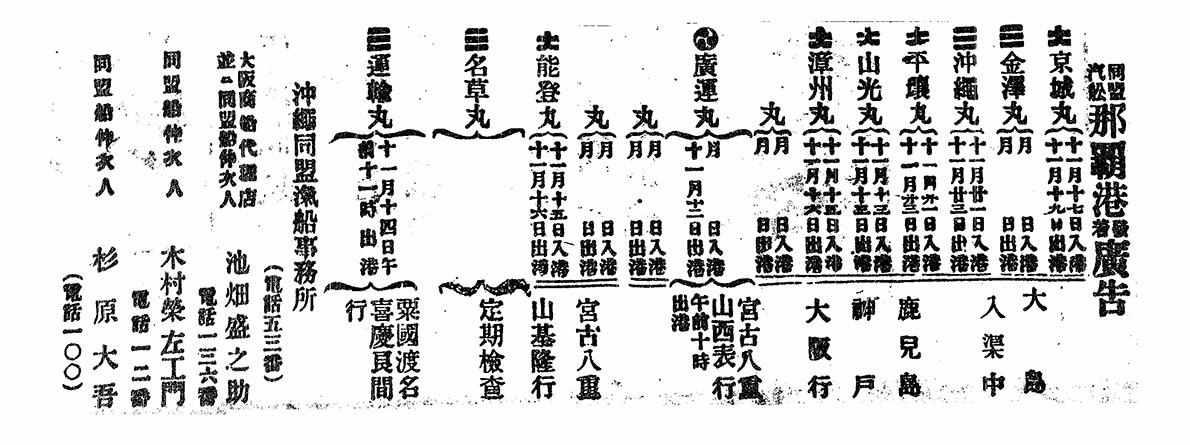 同盟汽舩那覇港發着廣告
京城丸 十一月十七日入港 十一月十九日出港
金澤丸 月 日入港 月 日出港
沖繩丸 十一月廿一日入港 十一月廿三日出港
平壤丸 日入港 日出港
山光丸 十一月十三日入港 十一月十五日出港
漳州丸 十一月十五日入港 十一月十六日出港
丸 月 日入港 月 日出港
大島
入渠中
鹿兒島
神戸
大阪行
廣運丸 月 日入港 十一月十二日出港
宮古八重
山西表行
午前十時
出港
丸 月 日入港 月 日出港
丸 月 日入港 月 日出港
能登丸 十一月十五日入港 十一月十六日出港
宮古八重
山基隆行
名草丸 定期檢查
運輸丸 十一月十四日午前十一時出港
粟國渡名
喜慶良間
行
沖繩同盟滊船事務所
(電話五三番)
大阪商船代理店
並ニ同盟船仲次人 池畑盛之助
電話一三六番
同盟船仲次人 木村榮左工門
電話一二番
同盟船仲次人 杉原大吾
(電話一〇〇)